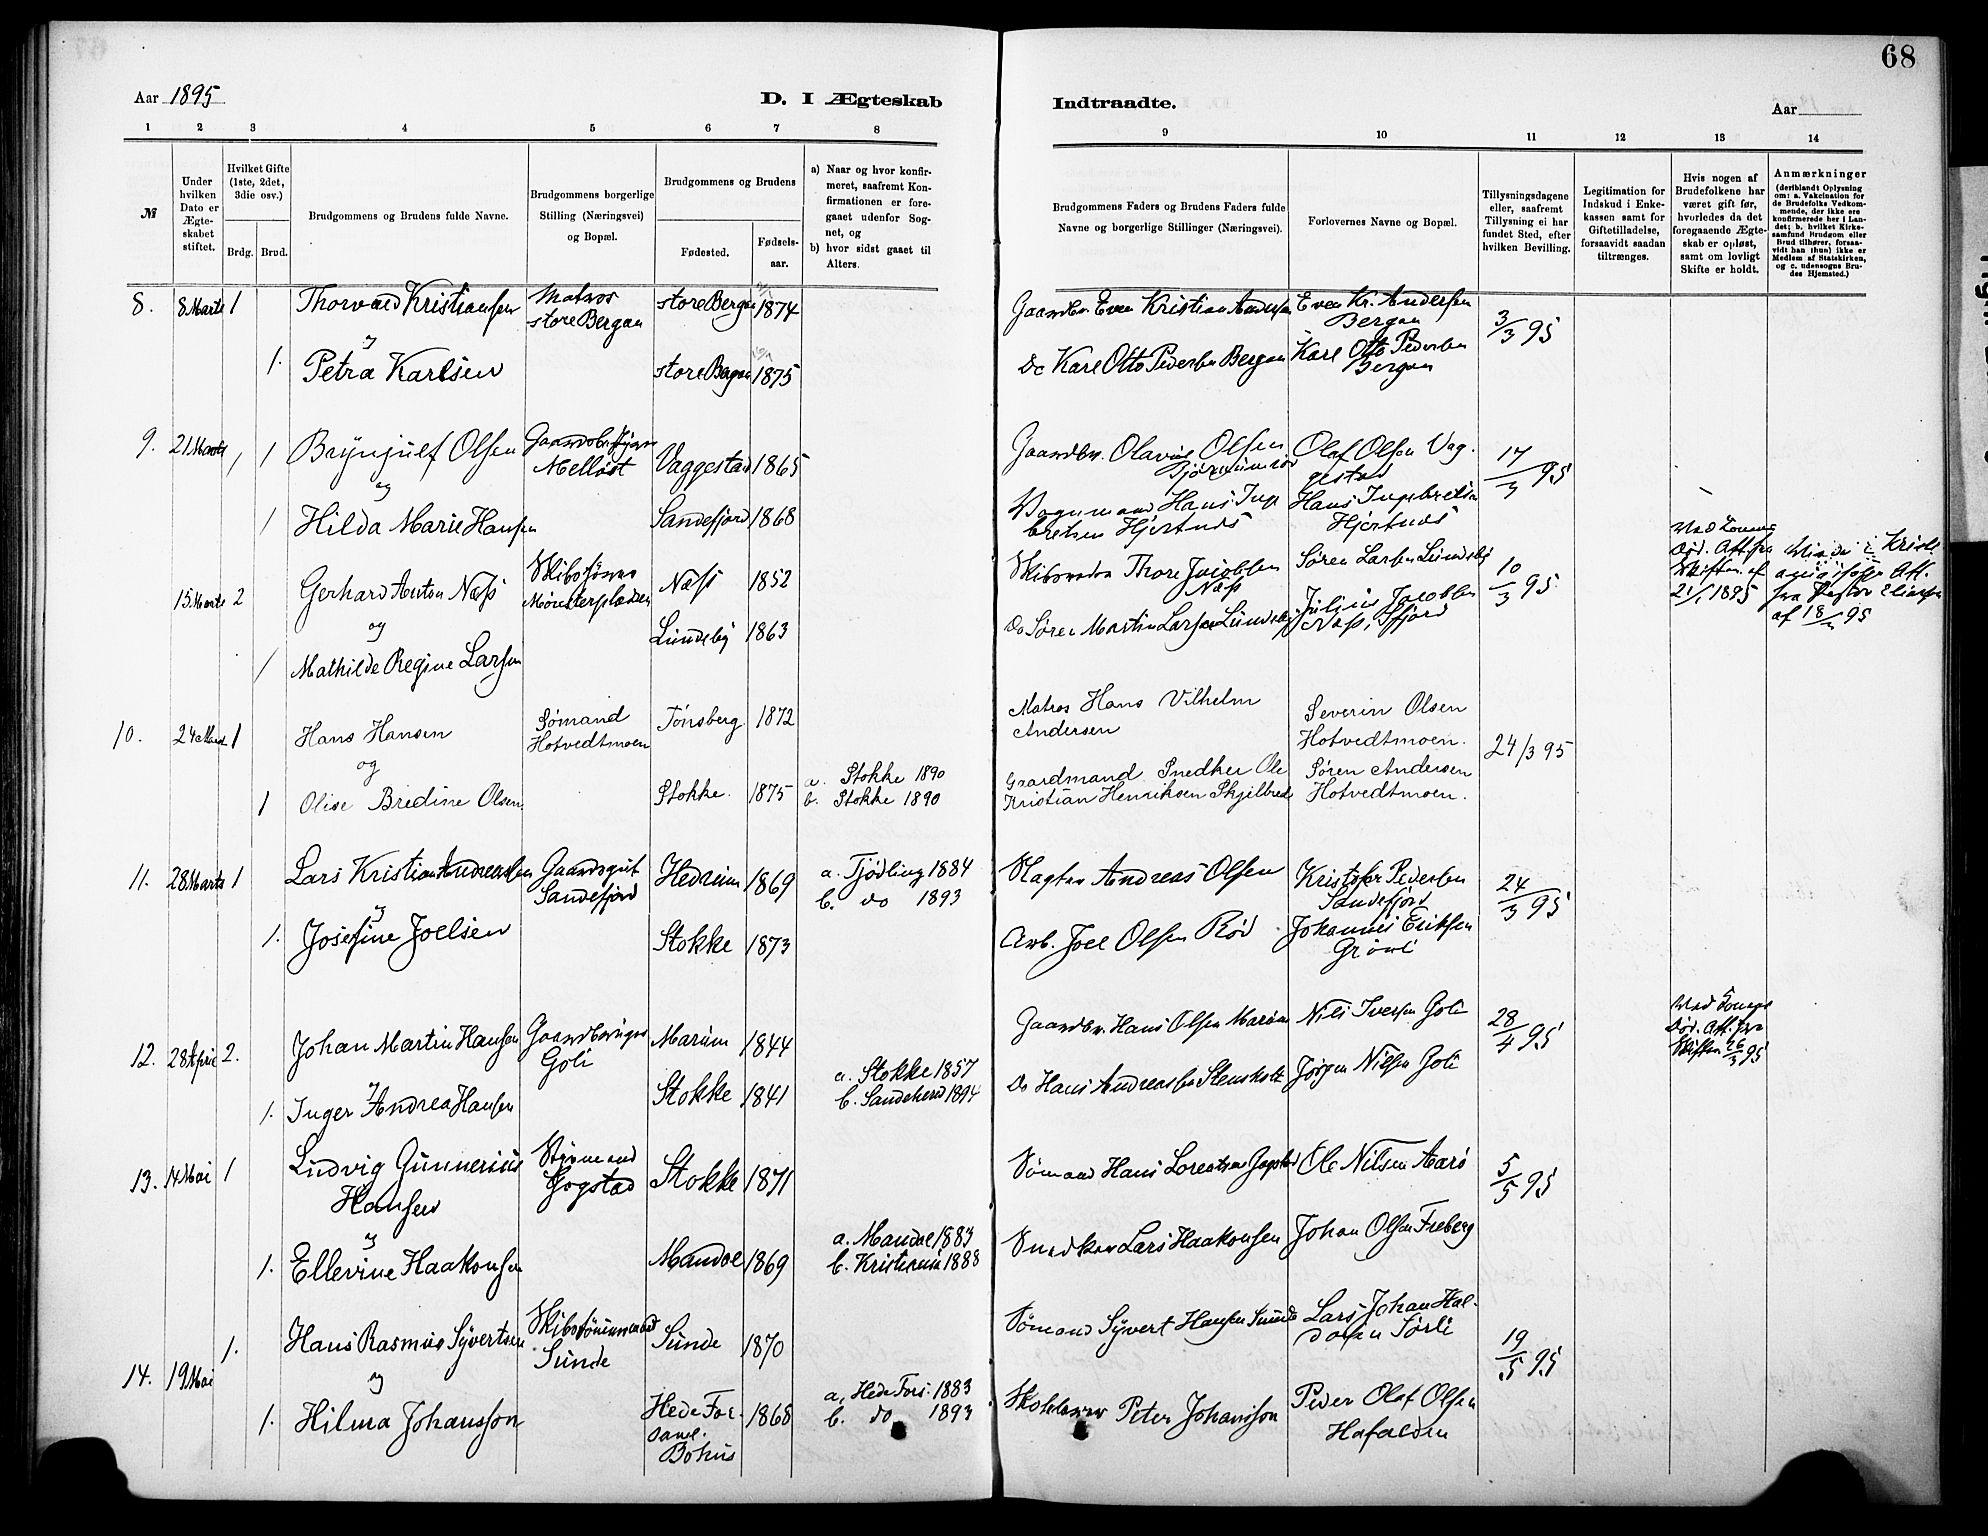 68
Aar 1895
D. I Ægteskab
Indtraadte.
Aar
1 2 3 4 5 6 7 8
9 10 11 12 13 14
№
Under hvilken Dato er Ægteskabet stiftet.
Hvilket Gifte (1ste, 2det, 3die osv.)
Brdg. Brud.
Brudgommens og Brudens fulde Navne.
Brudgommens borgerlige Stilling (Næringsvei) og Bopæl.
Brudgommens og Brudens
Fødested.
Fødsels-aar.
a) Naar og hvor konfirmeret, saafremt Konfirmationen er foregaaet udenfor Sognet, og
b) hvor sidst gaaet til Alters.
Brudgommens Faders og Brudens Faders fulde Navne og borgerlige Stillinger (Næringsvei).
Forlovernes Navne og Bopæl.
Tillysningsdagene eller, saafremt Tillysning ei har fundet Sted, efter hvilken Bevilling.
Legitimation for Indskud i Enkekassen samt for Giftetilladelse, forsaavidt saadan tiltrænges.
Hvis nogen af Brudefolkene har været gift før, hvorledes da det foregaaende Ægteskab er opløst, samt om lovligt Skifte er holdt.
Anmærkninger
(deriblandt Oplysning om: a. Vakcination for de Brudefolks Vedkommende, der ikke ere konfirmerede her i Landet; b. hvilket Kirkesamfund Brudgom eller Brud tilhører, forsaavidt han (hun) ikke er Medlem af Statskirken, og c. udensogns Brudes Hjemsted.)
8. 8 Marts 1 Thorvald Kristiansen Matros store Bergan store Bergan 1874
Gaardbr. Even Kristian Andersen Even Kr. Andersen Bergan 3/3 95
og
1. Petra Karlsen store Bergan 1875
Do Karl Otto Pedersen Bergan Karl Otto Pedersen Bergan
9. 21 Marts 1 1 Brynjulf Olsen Melløst Vaggestad 1865
Gaardbr. Olavus Olsen Olaf Olsen Vaggestad 17/3 95
og
1 Hilda Marie Hansen Sandefjord 1868
Hans Ingebretsen Hjertnæs Hans Ingebretsen Hjertnæs
15 Marts 2 Gerhard Anton Næss Næss 1852
Thore Jacobsen Næss Søren Larsen Lundeby 10/3 95
Ved Konens Død. Att. fra Skiften af 2/1 1895
og
1 Mathilde Regine Larsen Lundeby 1863
Do Søren Martin Larsen Lundeby Julius Jacobsen Næss, Sfjord
af 18/ 95
10. 24 Marts 1 Hans Hansen Sømand Hotvedtmoen Tønsberg 1872
Matros Hans Vilhelm Andersen Severin Olsen Hotvedtmoen. 24/3 95
og
1 Olise Bredine Olsen Stokke. 1875 a. Stokke 1890
b. Stokke 1890
Gaardmand Snedker Ole Kristian Henriksen Skjelbred Søren Andersen Hotvedtmoen.
11. 28 Marts 1 Lars Kristian Andreassen Gaardsgut Sandefjord Hedrum 1869 a. Tjødling 1884
b. do 1893
Slagter Andreas Olsen Kristofer Pedersen Sandefjord 24/3 95
og
1. Josefine Joelsen Stokke 1873
Arb. Joel Olsen Rød Johannes Eriksen Grønli
12. 28 April 2. Johan Martin Hansen Gaardbruger Goli Marum 1844
Gaardbr. Hans Olsen Marum Nils Iversen Goli 28/4 95
Ved Konens Død. Att. fra Skiften 26/3 95
og
1. Inger Andrea Hansen Stokke 1841 a. Stokke 1857
b. Sandeherred 1894
Do Hans Andreassen Stensholt Jørgen Nilsen Goli
13. 14 Mai 1 Ludvig Gunnerius Hansen Styrmand Gogstad Stokke 1871
Sømand Hans Lorentsen Gogstad Ole Nilsen Aarø 5/5 95
og
1. Ellevine Haakonsen Mandal 1869 a. Mandal 1883
b. Kristiania 1888
Snedker Lars Haakonsen Johan Olsen Freberg
14. 19 Mai 1. Hans Rasmus Syvertsen Skibstømmermand Sunde Sunde 1870
Sømand Syvert Hansen Sunde Lars Johan Haldorsen Sørli 19/5 95
og
1. Hilma Johansson Hede Forsaml. Bohus 1868 a. Hede Fors. 1883
b. do 1893
Peter Johansson Peder Olaf Olsen Hafalden